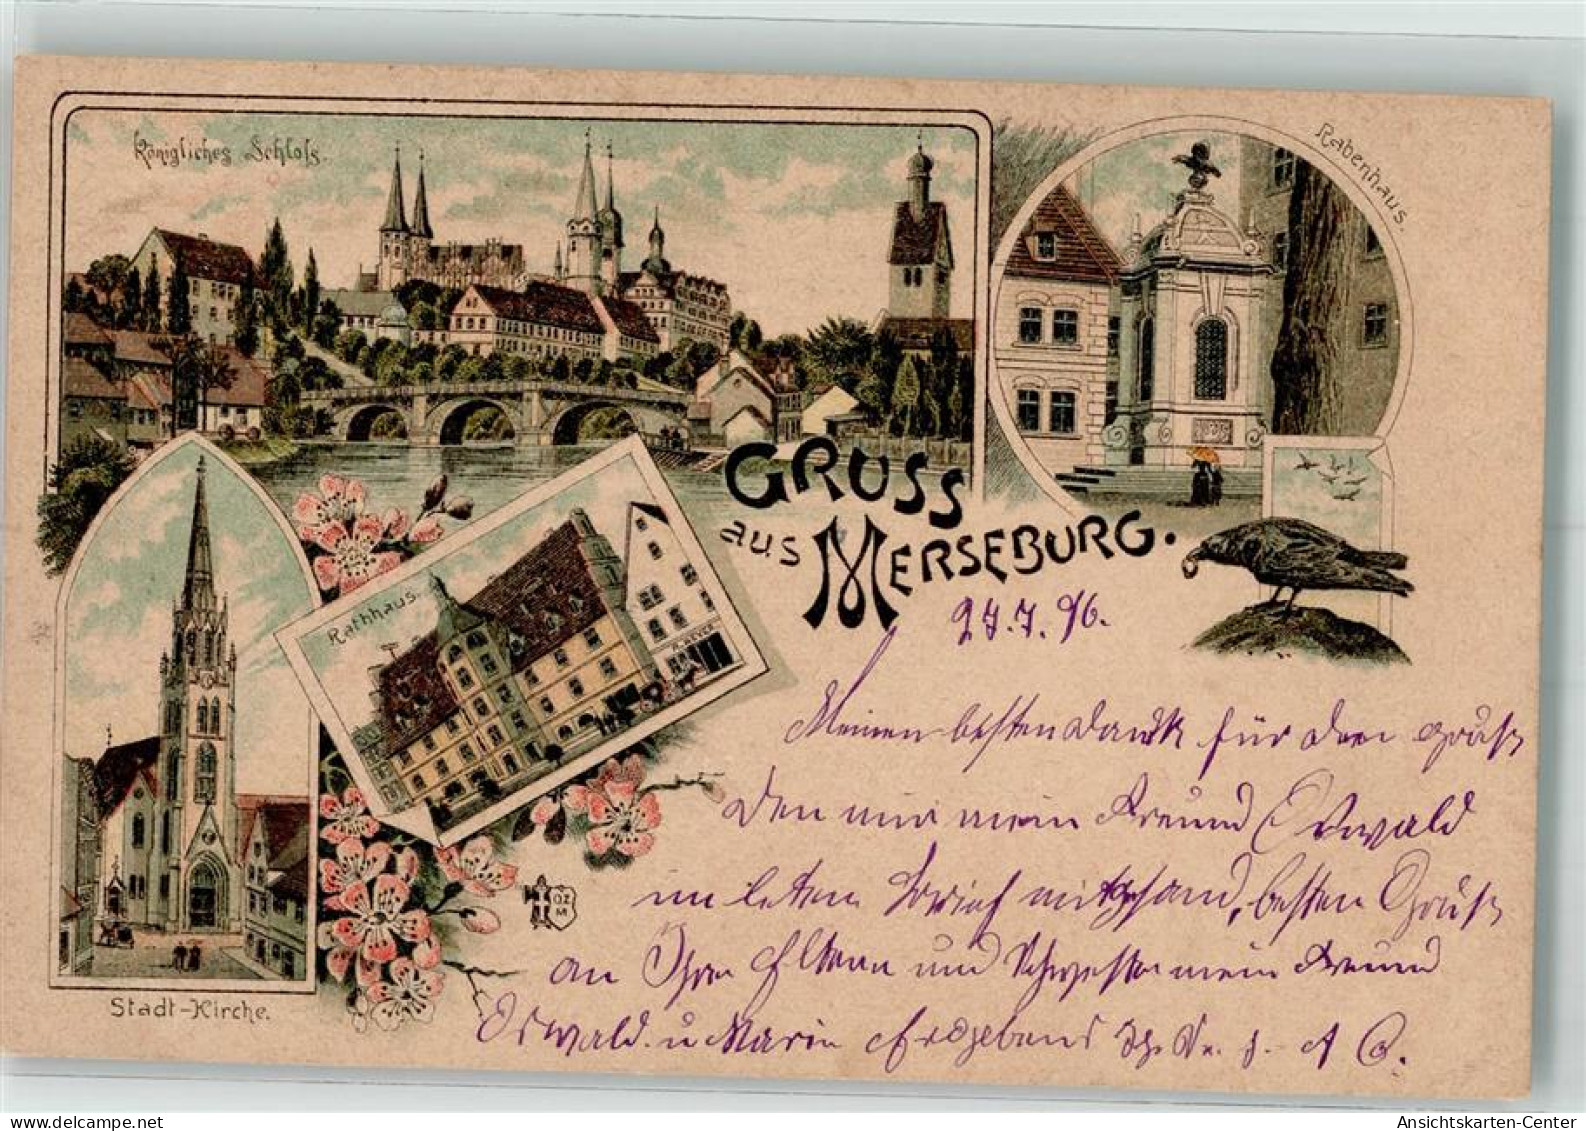 Königliches Schloſs.
Rabenhaus.
GRUSS
aus MERSEBURG.
Rathhaus.
R. MEYER
Stadt-Kirche.
O.Z.
M
27.7.96.
Meinen besten Dank für den Gruß
den mir mein Freund Oswald
im letzten Brief mitgesand, besten Gruß
an Ihre Eltern und Schwester mein Freund
Oswald. u Marie Ergebenst
A
www.ansichtskarten-center.de
Ansichtskarten-Center